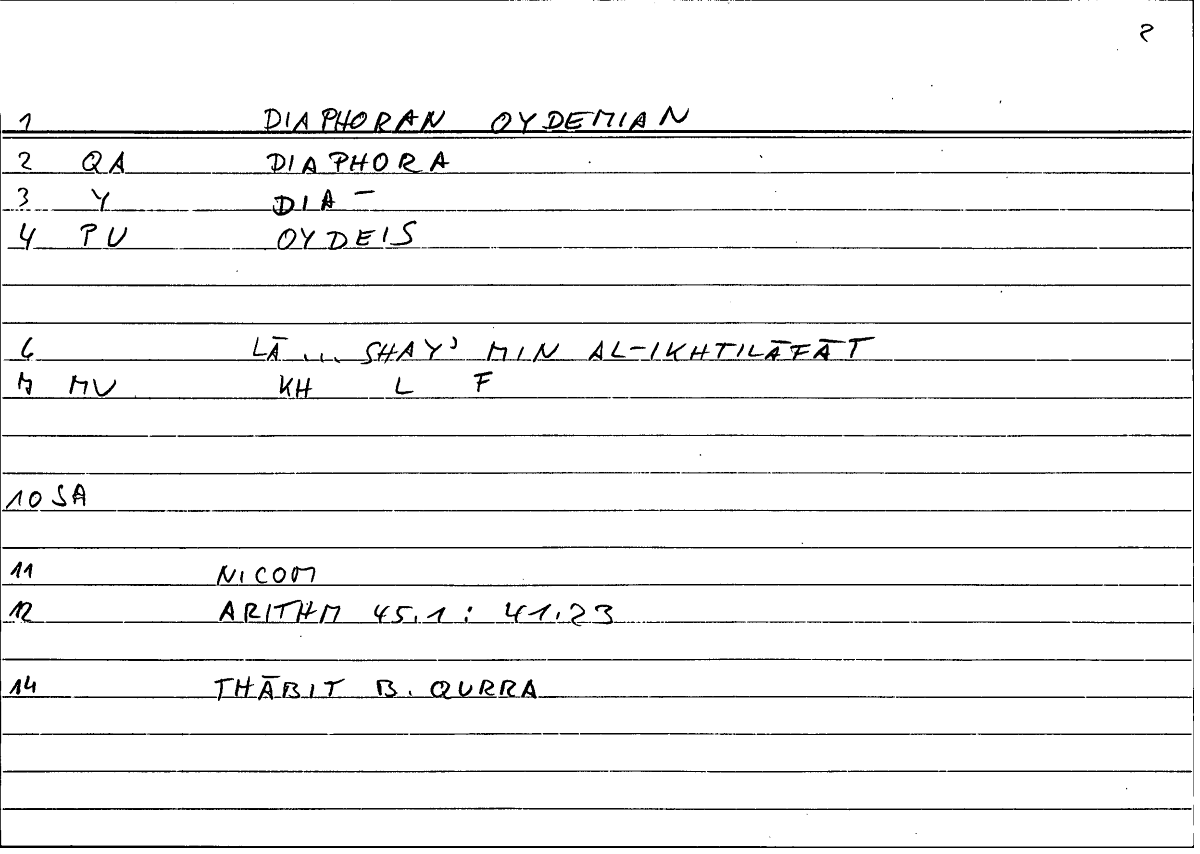 2
1 DIAPHORAN OYDEMIAN
2 QA DIAPHORA
3 Y DIA-
4 PU OYDEIS
6 LĀ ... SHAYʾ MIN AL-IKHTILĀFĀT
7 MU KH L F
10 SA
11 NICOM
12 ARITHM 45.1 : 41.23
14 THĀBIT B. QURRA